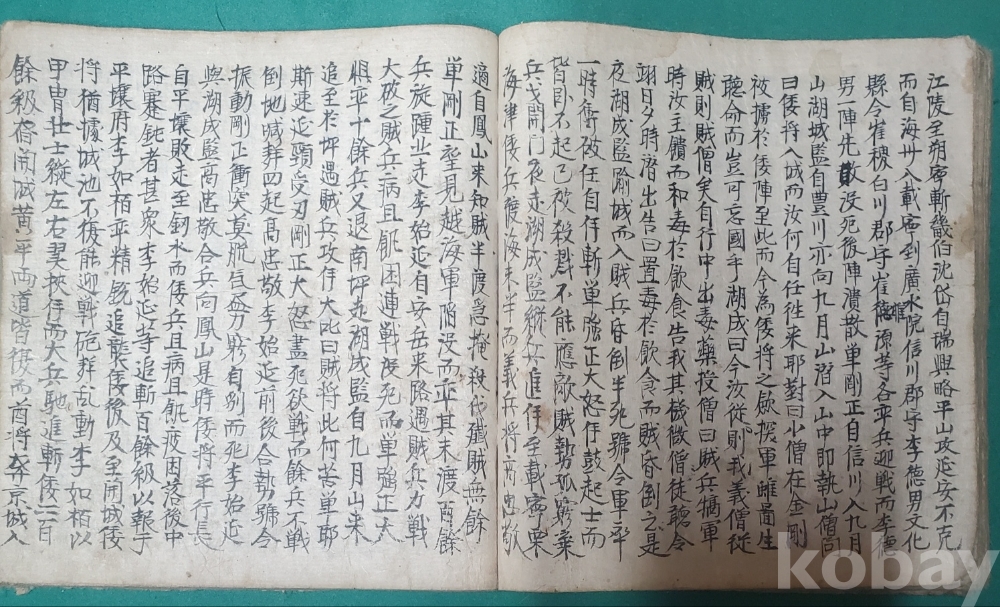 江陵至朔寧斬畿伯沈岱自瑞興略平山攻延安不克
而自海州入載寧到廣水院信川郡守李德男文化
縣令崔稷白川郡守崔德源等各率兵迎戰而李德
男一陣先敗沒死後陣潰散單剛正自信川入九月
山湖城監自豊川亦向九月山潛入山中卽執山僧問
曰倭將入城而汝何自任往來耶對曰小僧在金剛
被擄於倭陣至此而今為倭將之飲撰軍雖圖生
聽命而豈可忘國乎湖成曰今汝從則我義僧從
賊則賊僧矣自行中出毒藥投僧曰賊兵犒軍
時汝主饋而和毒於飲食告我其機微僧徒聽令
翊日夕時潛出告曰置毒於飲食而賊昏倒之是
夜湖成監踰城而入賊兵昏倒半死號令軍卒
一時衝破任自仵斬單強正大怒仵鼓起士而
皆卧不起已被殺戮不能應敵賊勢孤窮棄
兵戈開門夜走湖成監縱兵進仵至載寧栗
海津倭兵渡海未半而義兵將高忠敬
適自鳳山來知賊半渡急掩殺伐殲賊無餘
單剛正望見越海軍陷沒而率其未渡百餘
兵旋踵北走李始延自安岳來路遇賊兵力戰
大破之賊兵病且飢困連戰沒死而單強正大
惧率十餘兵又退南坪走湖成監自九月山來
追至於坪遇賊兵攻仵大叱曰賊將此何苦單耶
斯速延頸受刃剛正大怒盡死欲戰而餘兵不戰
倒地喊聲四起高忠敬李始延前後合勢號令
振動剛正衝突莫脫气盡力窮自刎而死李始延
與湖成監高忠敬合兵向鳳山是時倭將平行長
自平壤敗走至釼水而倭兵且病且飢疲困落後中
路蹇鈍者甚衆李始延等追斬百餘級以報于
平壤府李如栢率精銳追襲倭後及至開城倭
將猶據城池不復能迎戰砲聲乱動李如栢以
甲冑壮士縱左右翼挾仵而大兵馳進斬倭二百
餘級偹開城黃平兩道皆復而酋將奔京城入
kobay